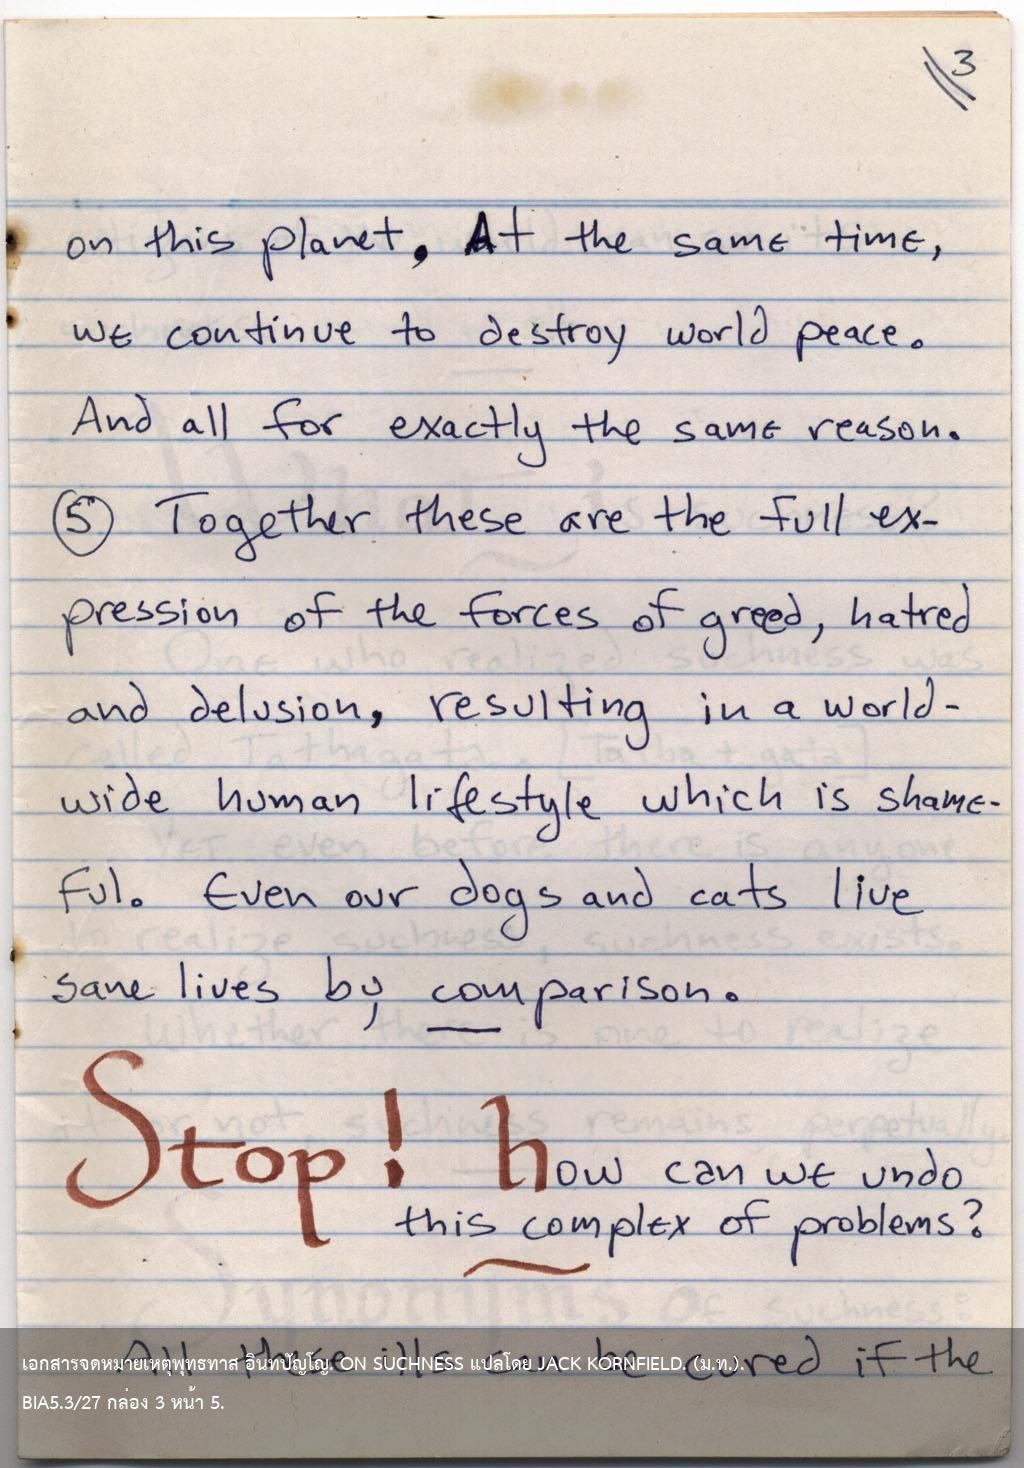 3
on this planet. At the same time,
we continue to destroy world peace.
And all for exactly the same reason.
⑤ Together these are the full ex-
pression of the forces of greed, hatred
and delusion, resulting in a world-
wide human lifestyle which is shame-
ful. Even our dogs and cats live
sane lives by comparison.
Stop! how can we undo
this complex of problems?
All these ills can be cured if the
เอกสารจดหมายเหตุพุทธทาส อินทปัญโญ. ON SUCHNESS แปลโดย JACK KORNFIELD. (ม.ท.).
BIA5.3/27 กล่อง 3 หน้า 5.